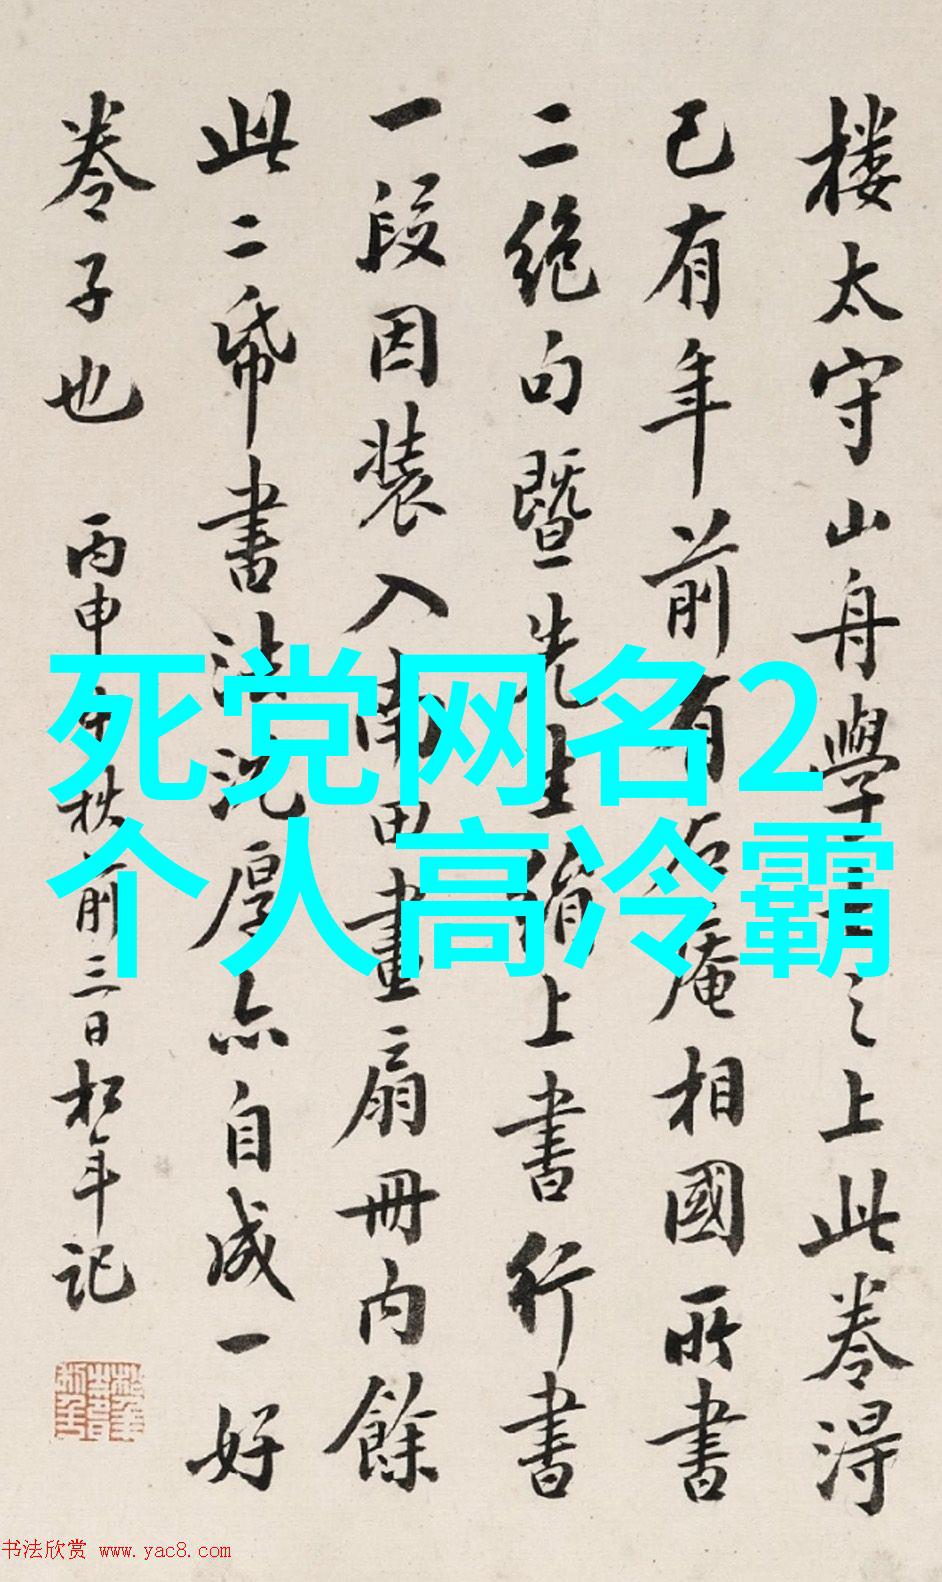 楼太守山舟學士之上此卷淂
已有年前有石庵相國所書
二絶句暨先生絹上書行書
一段因装入南田畫扇冊内餘
此二帋書法沉厚亦自成一好
卷子也
丙申中秋前三日松年記
死党网名2
个人高冷霸
书法欣赏 www.yac8.com